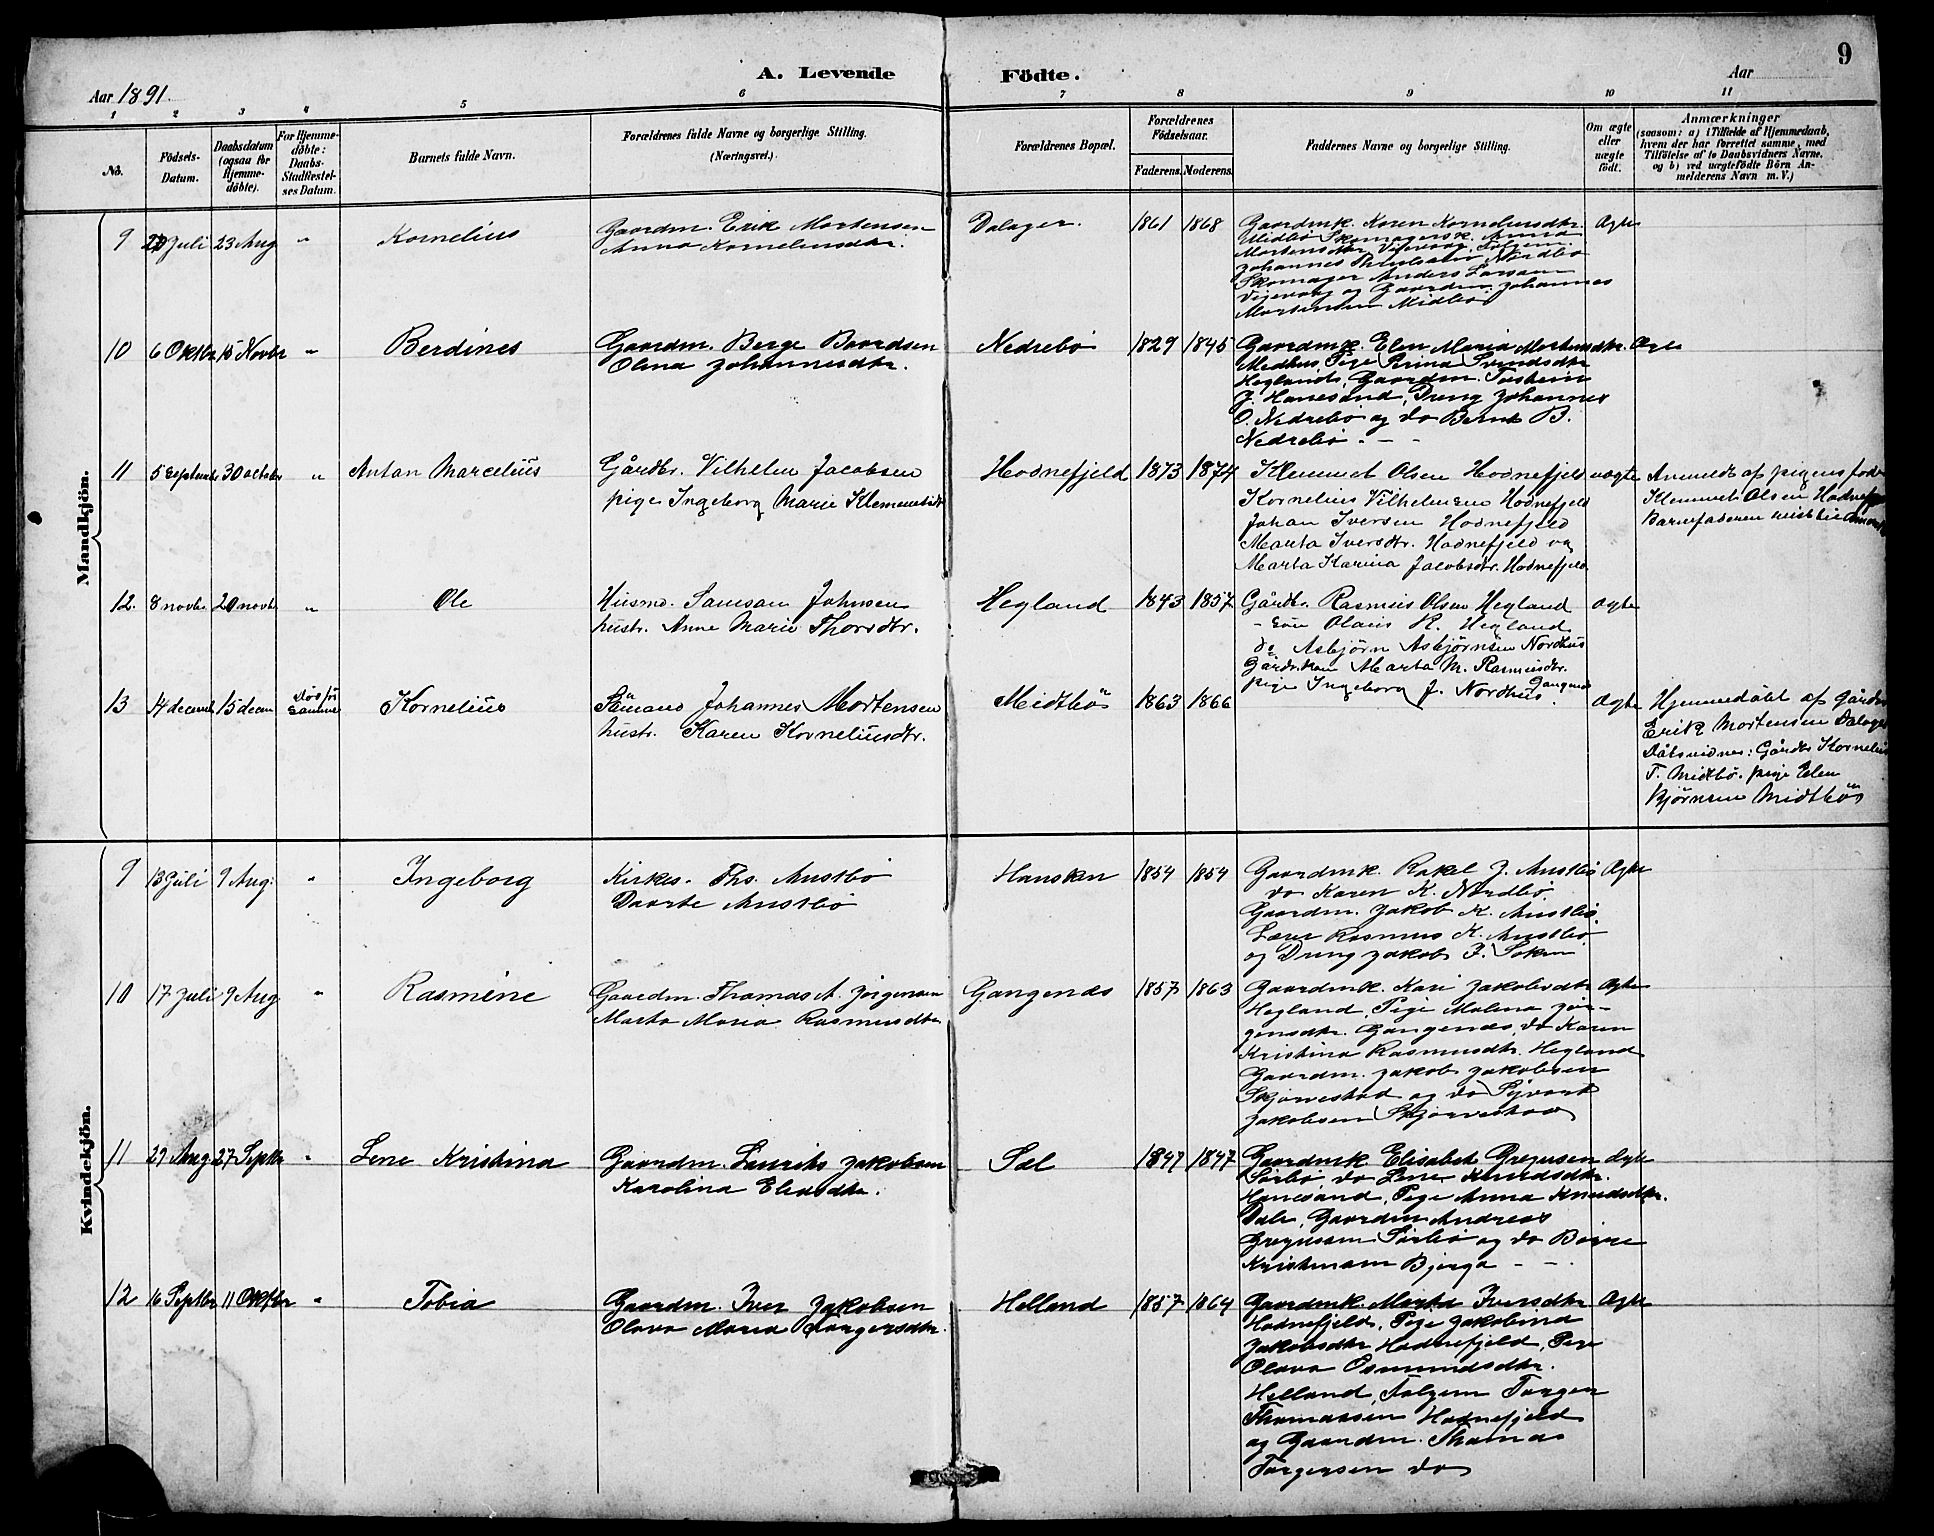 9
A. Levende Födte.
Aar 1891. Aar
1 2 3 4 5 6 7 8 9 10 11
No.
Födsels-Datum.
Daabsdatum (ogsaa for Hjemme-döbte).
For Hjemme-döbte: Daabs-Stadfæstel-ses Datum.
Barnets fulde Navn.
Forældrenes fulde Navne og borgerlige Stilling. (Næringsvei.)
Forældrenes Bopæl.
Forældrenes Födselsaar.
Faderens. Moderens.
Faddernes Navne og borgerlige Stilling.
Om ægte eller uægte födt.
Anmærkninger (saasom: a) i Tilfælde af Hjemmedaab, hvem der har forrettet samme, med Tilföielse af to Daabsvidners Navne, og b) ved uægtefödte Börn Anmelderens Navn m. V.)
Mandkjön.
9 Juli 23 Aug " Kornelius
Gaardm. Erik Mortensen
Anna Korneliusdtr.
Dalager. 1861 1868
Gaardmk. Karen Korneliusdtr.
Midbö Skomagersk. Anna
Mortensdtr.
Johannes Nordbö
Skomager Anders Larsen
og Gaardm. Johannes
Mortensen Midbö
Ægte
10 6 Oktbr 15 Novbr " Berdines
Gaardm. Berge Baardsen
Olina Johannesdtr.
Nedrebö 1829 1845
Gaardmk. Elen Maria Mortensdtr.
Medhus, Pige Svendsdtr
Heglands, Gaardm. Torstein
J. Hanesand, Dreng Johannes
O. Nedrebö og do Bernt B.
Nedrebö. - -
Ægte
11 5 September 30 october " Antan Marcelius
Gårdbr. Vilhelm Jacobsen
pige Ingeborg Marie Klemmetsdtr
Hodnefjeld 1873 1874
Klemmet Olsen Hodnefjeld
Kornelius Vilhelmsen Hodnefjeld
Johan Iversen Hodnefjeld
Marta Iversdtr. Hodnefjeld og
Marta Karina Jacobsdtr. Hodnefjeld
uægte
Anmeldt af pigens fader
Klemmet Olsen Hodnefjeld
Barnefaderen
12. 8 novb. 20 novb. " Ole
Husmd. Samson Johnsen
hustr. Anne Marie Thorsdtr.
Hegland 1843 1857
Gårdbr. Rasmus Olsen Hegland
- Søn Olaus R. Hegland
do Asbjørn Asbjørnsen Nordhus
Gårdbr.kon Marta M. Rasmusdtr. Gangenæs
pige Ingeborg J. Nordhus.
ægte
13 14 decemb 15 decem Död för samme Kornelius
Sömand Johannes Mortensen
hustr. Karen Korneliusdtr.
Midtbö 1863 1866
Ægte
Hjemmedöbt af Gårdbr
Erik Mortensen Dalager
Dåbsvidner: Gårdbr Kornelius
T. Midtbö. pige Elen
Bjørnsen Midtbö
Kvindekjön.
9 13 Juli 9 Aug: " Ingeborg
Kirkes. Ths. Austbö
Daarte Austbö
Hansken 1854 1854
Gaardmk. Rakel J. Austbö
do Karen K. Nordbö.
Gaardm. Jakob K. Austbö.
Lærer Rasmus K. Austbö
og Dreng Jakob J. Soken
Ægte
10 17 Juli 9 Aug " Rasmine
Gaardm. Thomas A. Jörgensen
Marta Maria Rasmusdtr
Gangenæs 1857 1863
Gaardmk. Kari Jakobsdtr
Hegland, Pige Malena Jör-
gensdtr. Gangenæs, do Karen
Kristina Rasmusdtr. Hegland
Gaardm. Jakob Jakobsen
Skjørvestad og do Sjvert
Jakobsen Skjørvestad
Ægte
11 29 Aug 27 Septbr " Lene Kristina
Gaardm. Laurits Jakobsen
Karolina Eliasdtr.
Sæl 1847 1847
Gaardmk. Elisabet Gregusen
Sörbö do Lene Knudsdtr.
Hanesand, Pige Anna Knudsdtr.
Dale, Gaardm Andreas
Gregusen Sörbö og do Börre
Kristensen Bjerga - -
Ægte
12 16 Septbr 11 Oktbr " Tobia
Gaardm. Iver Jakobsen
Olava Maria Torgersdtr.
Helland 1857 1864
Gaardmk. Marta Iversdtr
Hodnefjeld, Pige Jakobina
Jakobsdtr Hodnefjeld, Pige
Olava Osmundsdtr.
Helland, Tolgem Torger
Thomassen Hodnefjeld
og Gaardm. Thomas
Torgersen do
Ægte